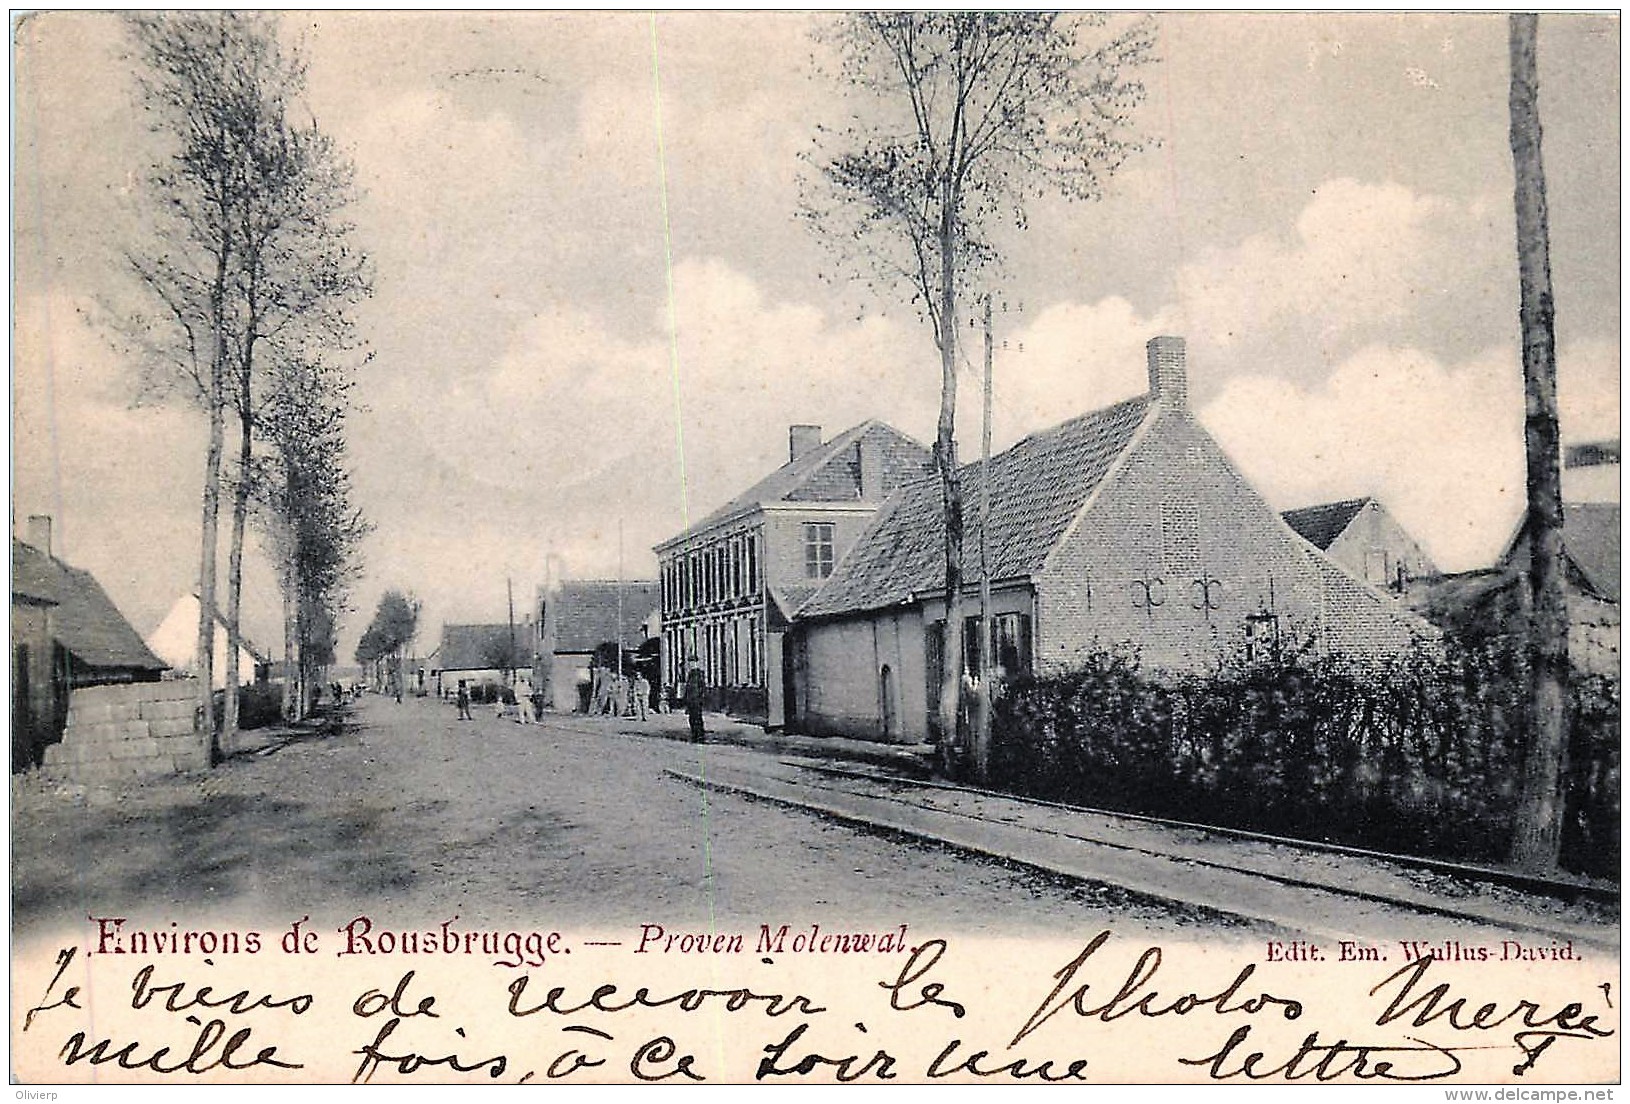 Environs de Rousbrugge. — Proven Molenwal.
Edit. Em. Wullus-David.
Je viens de recevoir les photos Merci
mille fois, à ce soir une lettre
Olivierp
www.delcampe.net